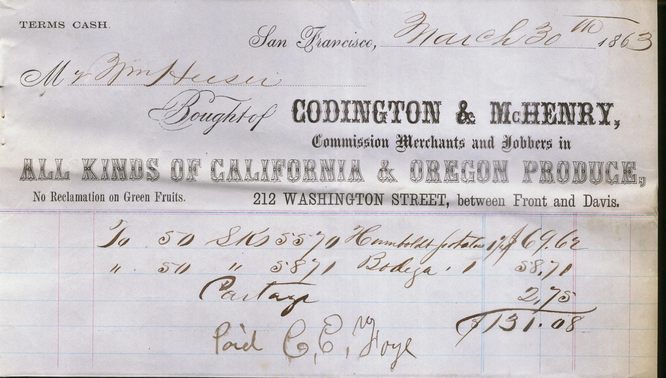 TERMS CASH.
San Francisco, March 30th 1863
Mr Wm
Bought of CODINGTON & McHENRY,
Commission Merchants and Jobbers in
ALL KINDS OF CALIFORNIA & OREGON PRODUCE,
No Reclamation on Green Fruits. 212 WASHINGTON STREET, between Front and Davis.
To 50 SKs 5570 Humboldt potatoes 1¼ $69.62
" 50 " 5871 Bodega " 1 58,71
Cartage 2,75
$131.08
Paid C, E,